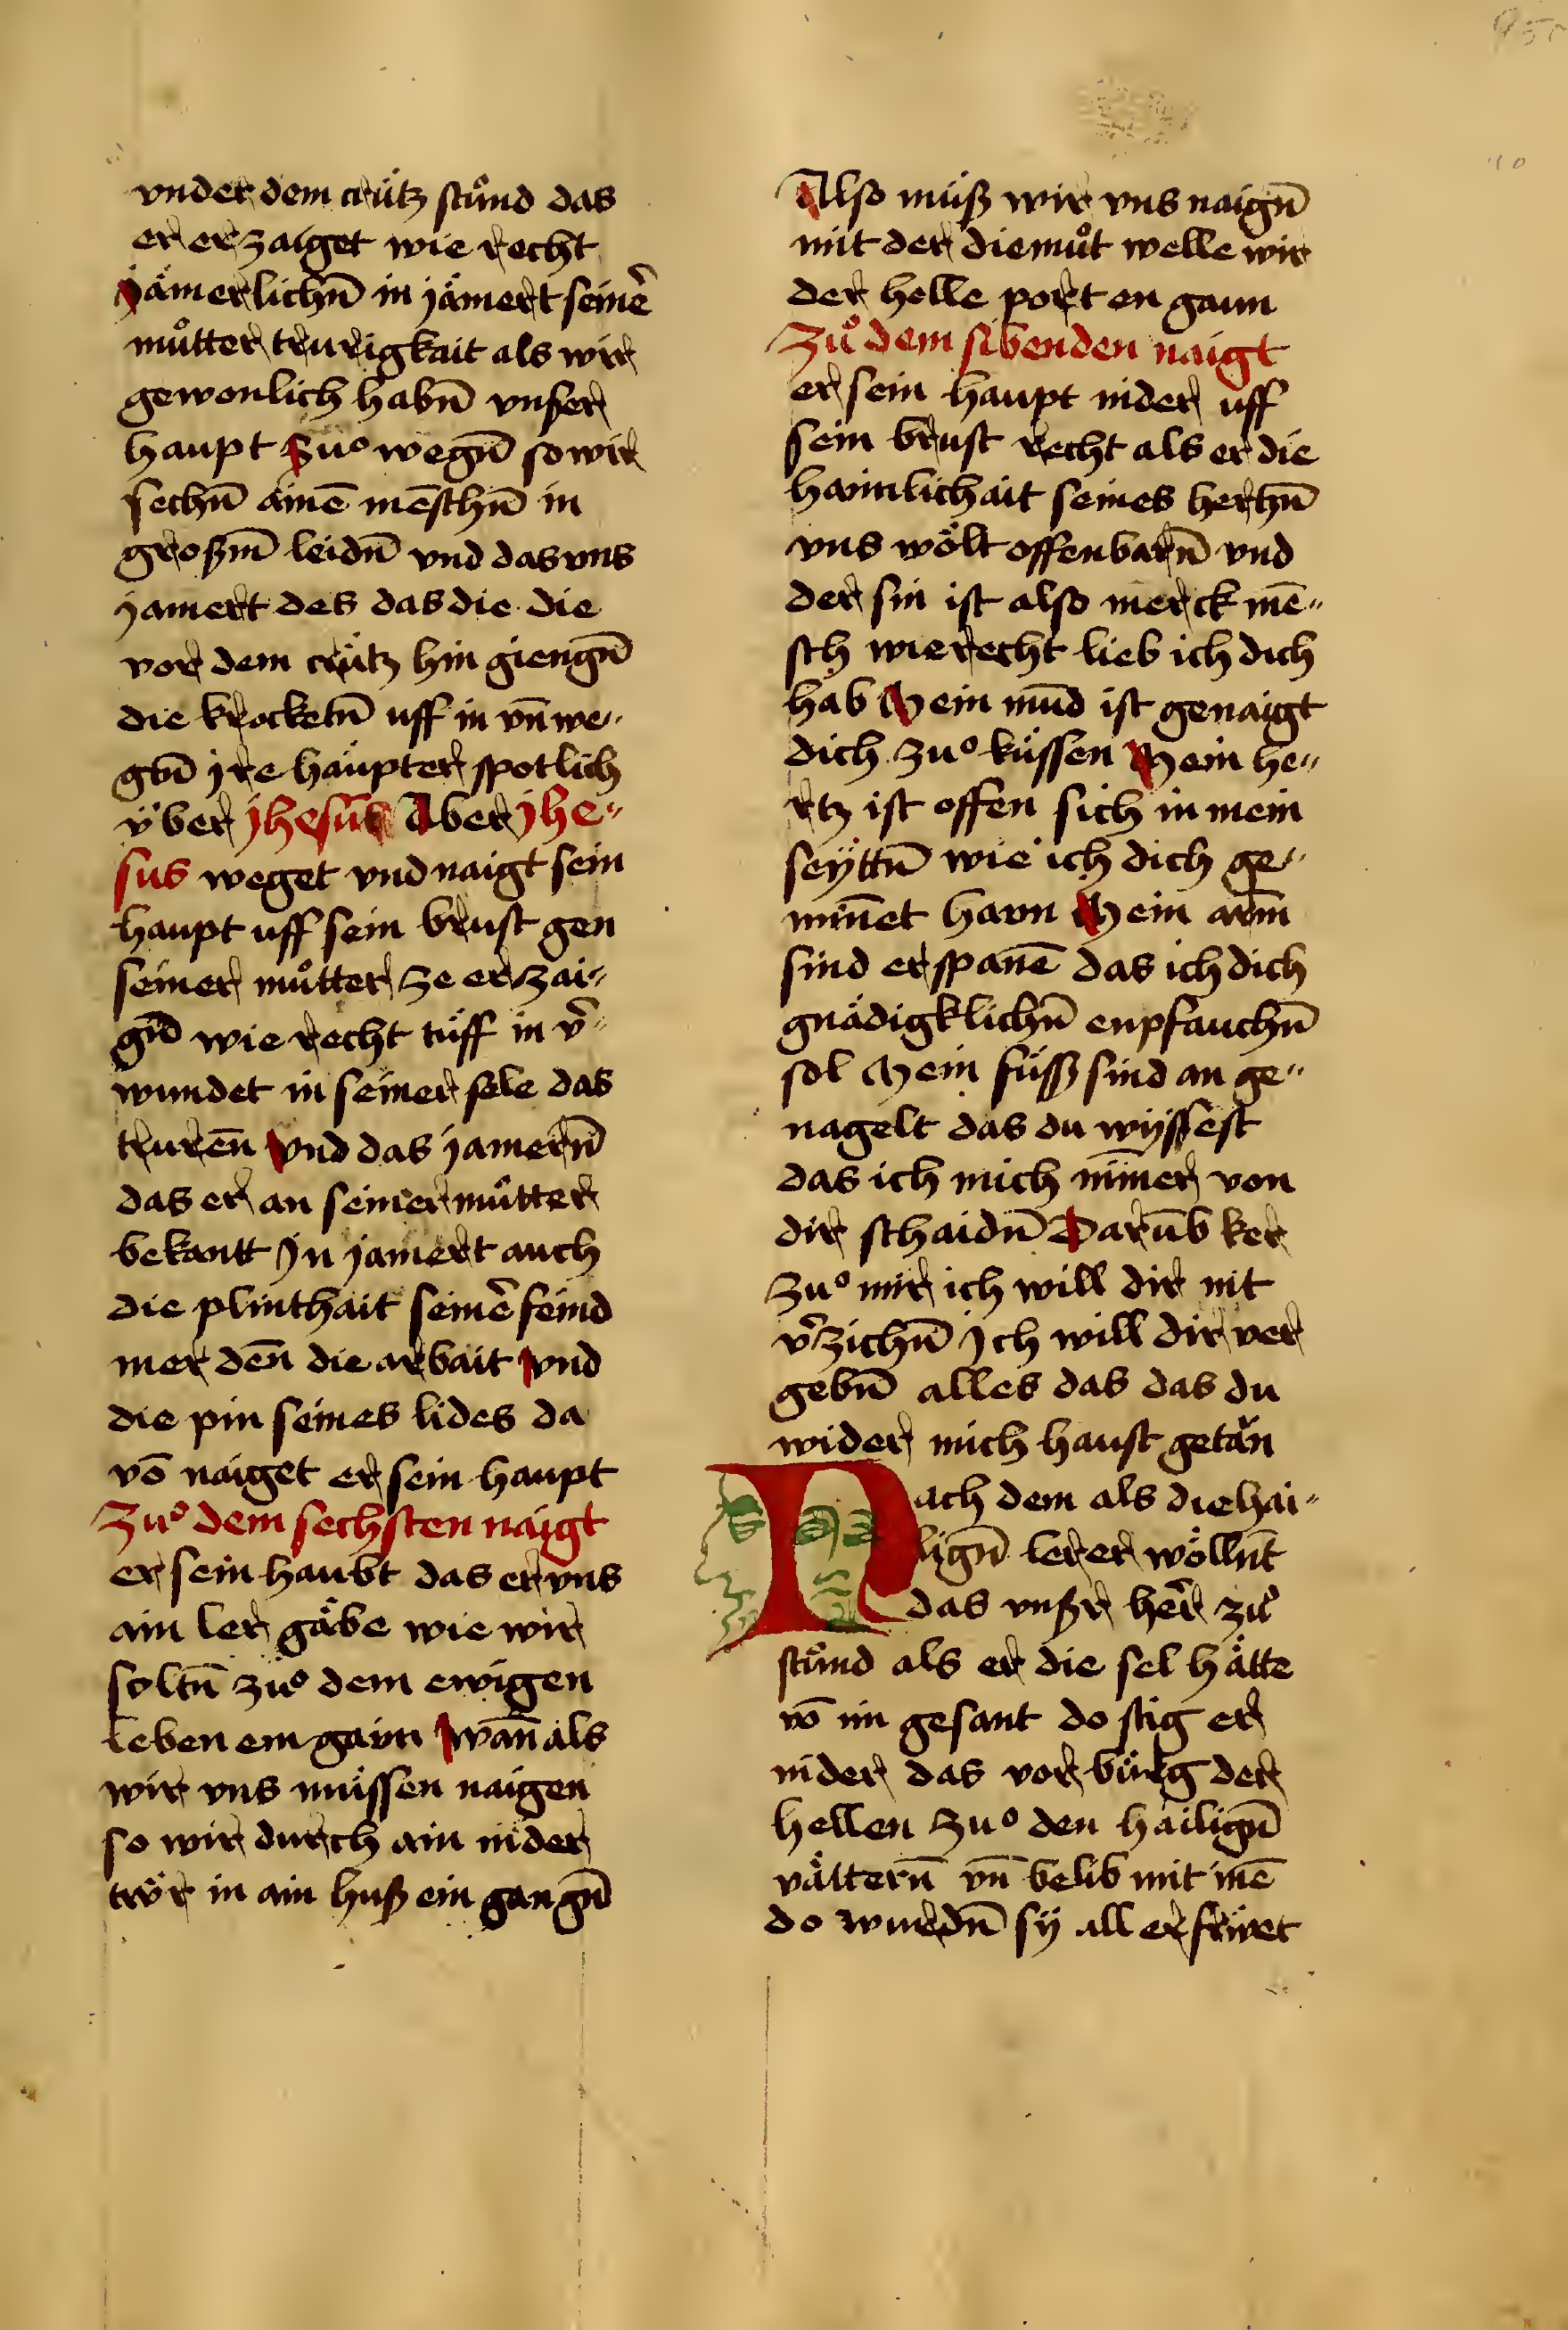 vnder dem crütz stůnd das
er erzaiget wie recht
jämerlichn̄ in jämert seinẽ
můtter trurigkait als wir
gewonlich habn̄ vnßer
haupt zuͦ wegn̄ so wir
sechn̄ ainē mēschn̄ in
großm̄ leidn̄ vnd das vns
jamert des das die die
vor dem crütz hin giengn̄
die krocketn̄ uff in vn̄ we„
gtn̄ jre häupter spotlich
v̈ber jhesum Aber jhe„
sus weget vnd naigt sein
haupt uff sein brust gen
seiner můtter ze erzai„
gn̄d wie recht tüff in v̄„
wundet in seiner sele das
trurēn vnd das jamern̄
das er an seiner můtter
bekantt jn jamert auch
die plinthait seinẽ feind
mer den̄ die arbait vnd
die pin seines lides da
vō naiget er sein haupt
Zuͦ dem sechsten naigt
er sein haubt das er vns
ain ler gäbe wie wir
soltn̄ zuͦ dem ewigen
leben ein gaun wan̄ als
wir vns müssen naigen
so wir durch ain nider
twr in ain huß ein gangn̄
Also müß wir vns naign̄
mit der diemůt welle wir
der helle port en gaun
Zů dem sibenden naigt
er sein haupt nider uff
sein brust recht als er die
haimlichait seines hertzn̄
vns wölt offenbarn̄ vnd
der sin ist also merck mē„
sch wie recht lieb ich dich
hab Mein mūd ist genaigt
dich zuͦ küssen Mein he„
rtz ist offen sich in mein
seÿttn̄ wie ich dich ge„
min̄et haun Mein arm̄
sind erspanē das ich dich
gnädigklichn̄ enpfauchn̄
sol Mein füß sind an ge„
nagelt das du wyssest
das ich mich nim̄er von
dir schaidn̄ Darūb ker
zuͦ mir ich will dir nit
v̄zichn̄ Ich will dir ver
gebn̄ alles das das du
wider mich haust getän
Nach dem als die hai„
lign̄ lerer wölln̄t
das vnßr her̄ zů
stůnd als er die sel hätte
vō im gesant do stig er
nider das vor bürg der
hellen zuͦ den hailign̄
vättern̄ vn̄ belib mit inē
do wurdn̄ sÿ all erfrwet